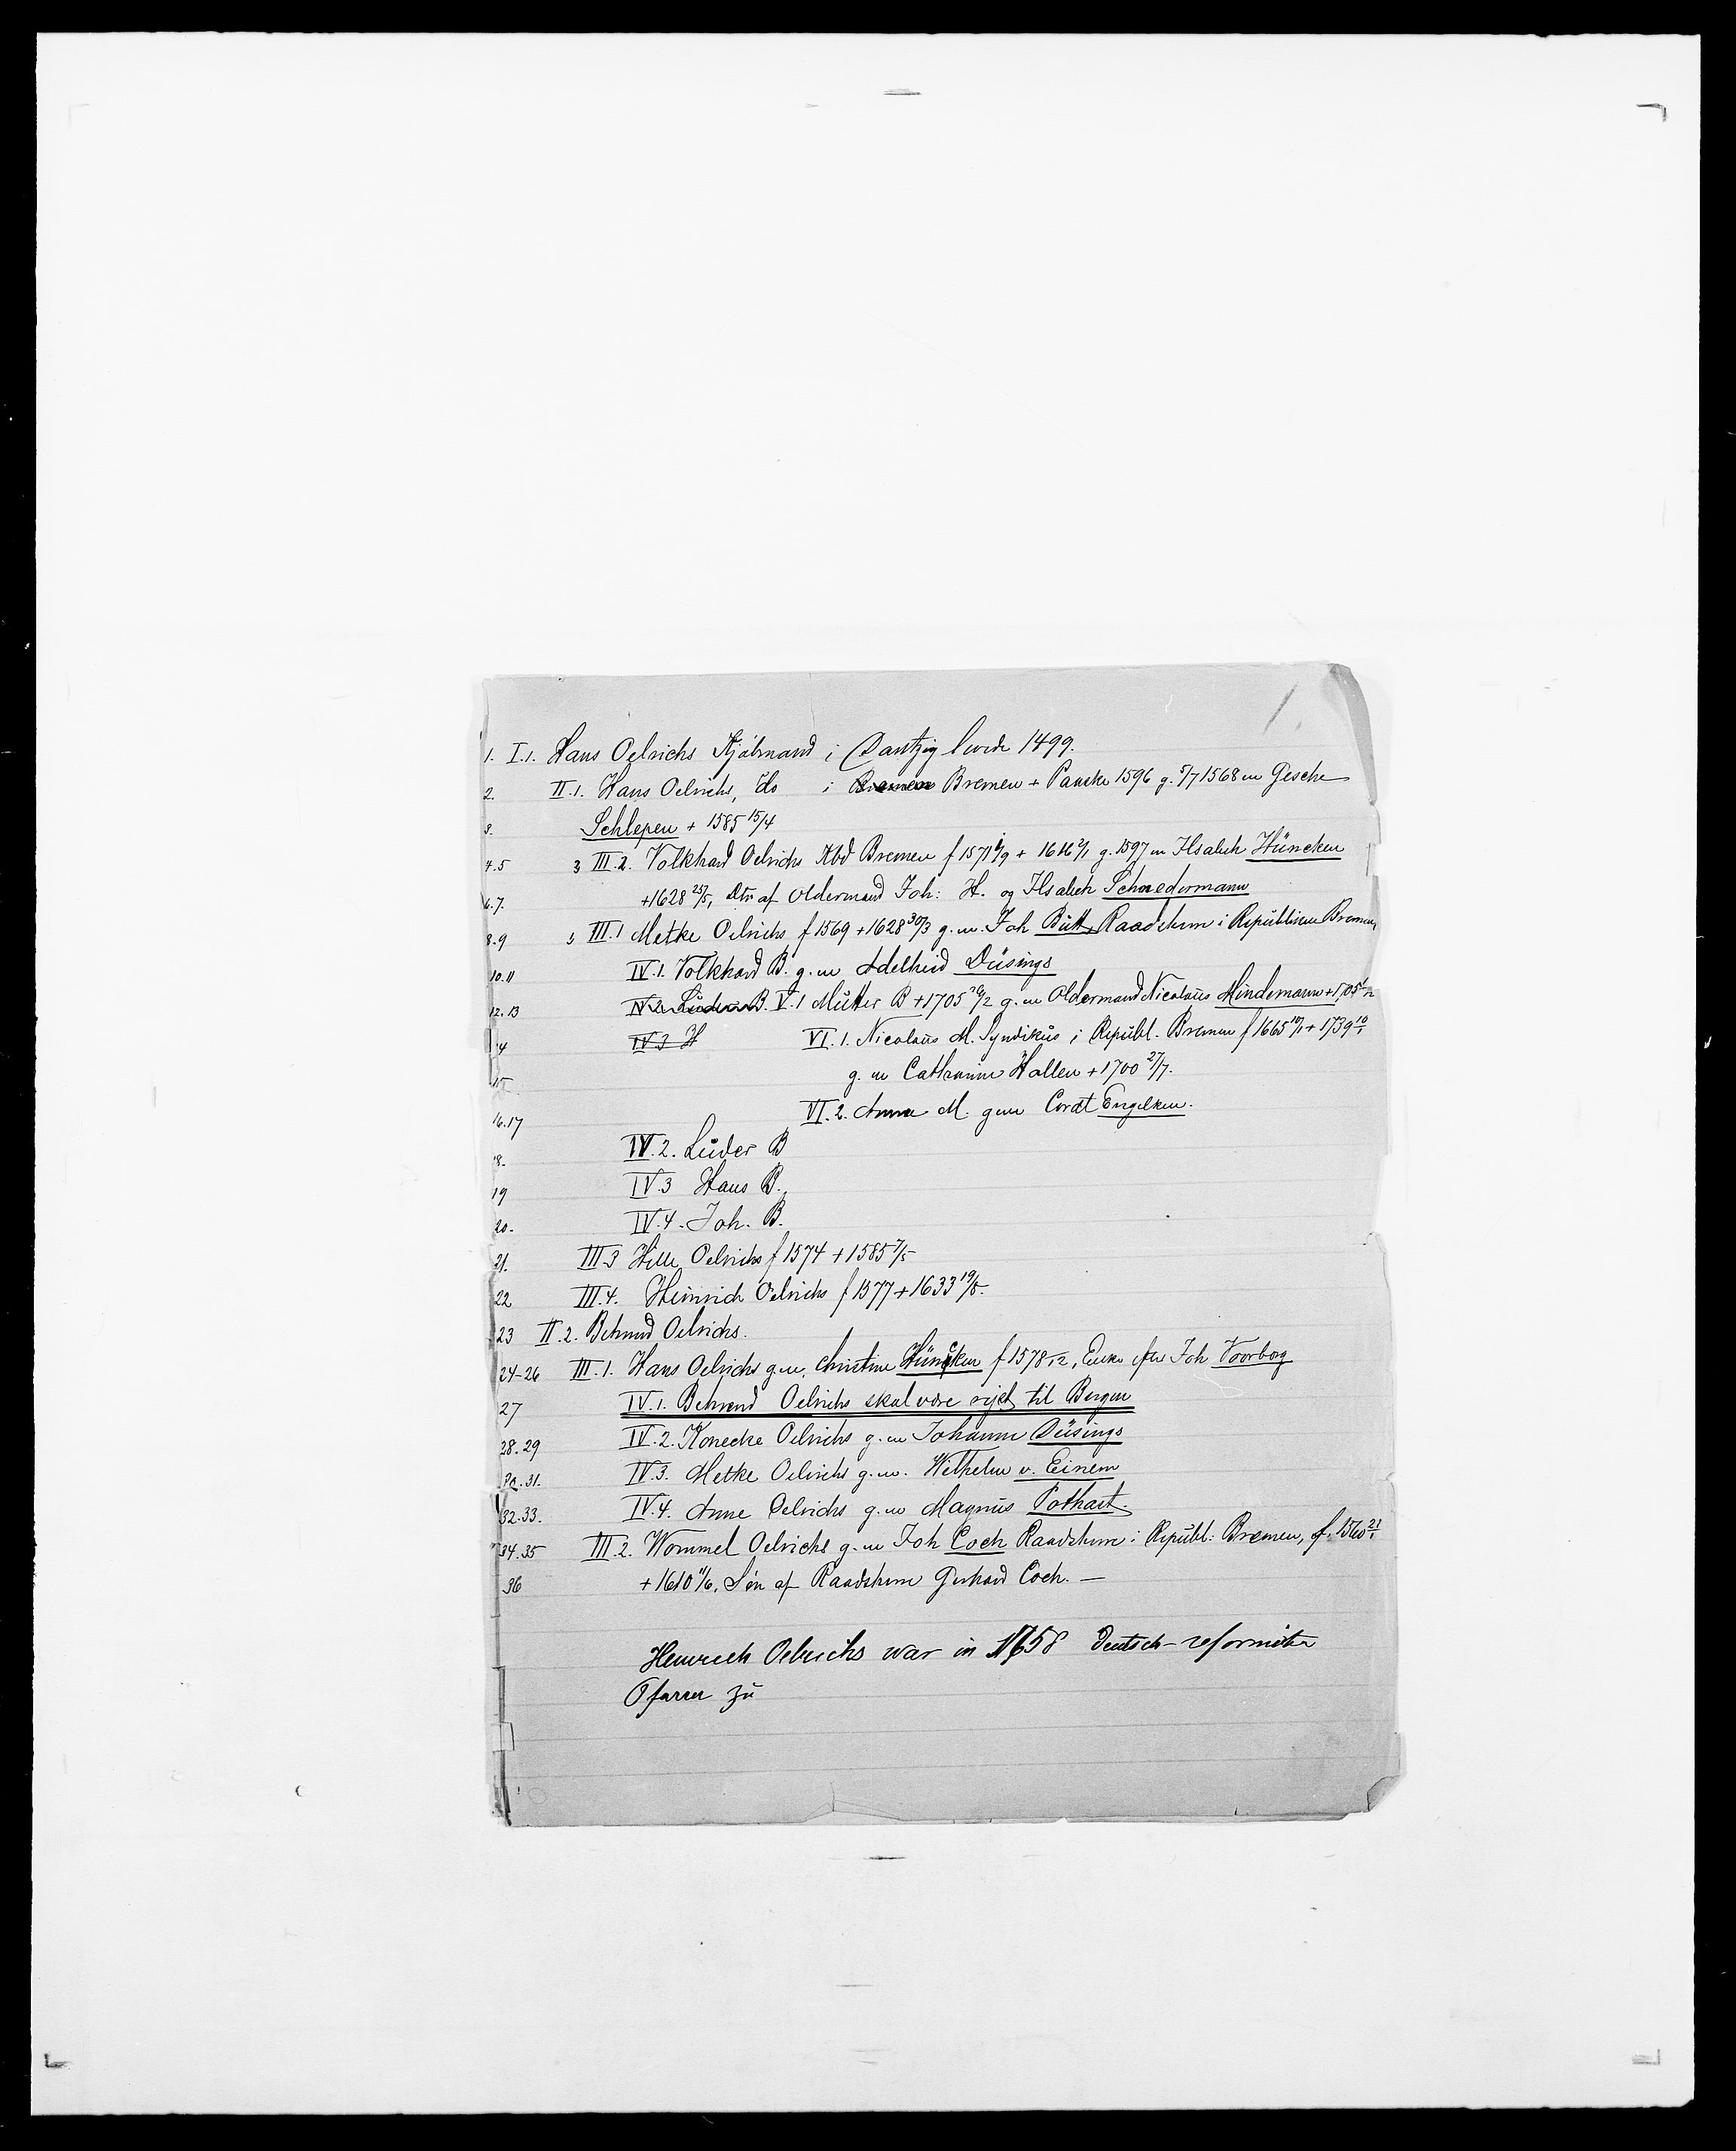 1.
1. I.1. Hans Oelrichs Kjøbmand i Dantzig levede 1499.
2. II.1. Hans Oelrichs, do i Bremen Bremen + Paaske 1596 g. 5/7 1568 m Gesche
3. Schlepen + 1585 15/4
4.5 3 III.2. Volkhard Oelrichs Kbd Bremen f 1571 + 1616 g. 1597 m Ilsabeh Hüncken
6.7. +1628 25/5, Dtr af Oldermand Joh: H. og Ilsabeh Schwedermann
8.9 III.1 Metke Oelrichs f 1569 + 1628 30/3 g.m. Joh Bütt, Raadsherre i Republiken Bremen,
10.11 IV.1. Volkhard B. g.m Adelheid Düsings
12.13 IV.2. Lüder B. V.1 Mütter B +1705 g.m Oldermand Nicolaüs Mindemann +
14 IV.3 H VI.1. Nicolaüs M. Syndiküs i Republ. Bremen f 1665 + 1739
15 g.m Catharine Hallen + 1700 27/7.
16.17 VI.2. Anna M. g.m Cordt Engelken.
18. IV.2. Lüder B
19 IV.3 Hans B.
20. IV.4. Joh. B.
21. III.3 Hille Oelrichs f 1574 + 1585 7/5
22 III.4. Heinrich Oelrichs f 1577 + 1633 19/8.
23 II.2. Behrend Oelrichs.
24-26 III.1. Hans Oelrichs g.m. Christine Hüncken f 1578, Enke efter Joh Voorborg
27 IV.1. Behrend Oelrichs skal være rejst til Bergen
28.29 IV.2. Konecke Oelrichs g.m Johann Düsings
30.31. IV.3. Metke Oelrichs g.m. Wilhelm v. Einem
32.33. IV.4. Anne Oelrichs g.m Magnüs Pothast.
34.35 III.2. Wommel Oelrichs g.m Joh Coch Raadsherre i Republ: Bremen, f. 1560 21/1
36 + 1610 11/6, Søn af Raadsherre Gerhard Coch. —
Heinrich Oelrichs war in 1658 Deutsch-reformirter
Pfarrer zu